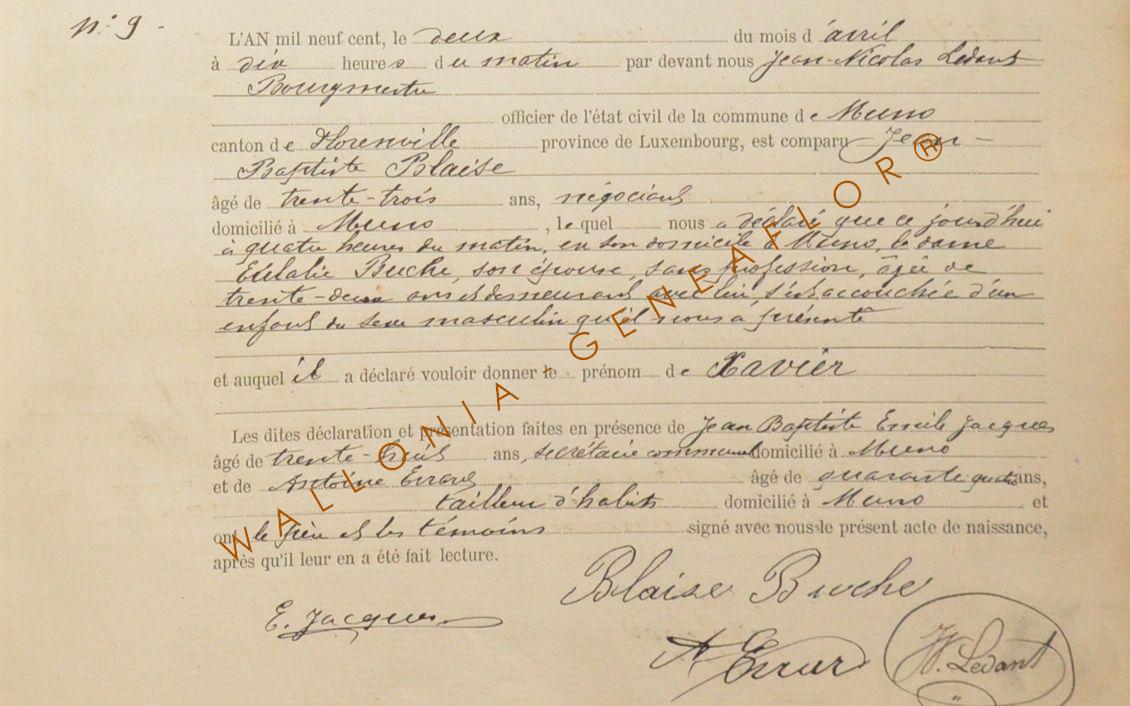 n° 9 -
L'AN mil neuf cent, le deux du mois d'avril
à dix heures du matin par devant nous Jean-Nicolas Ledant
Bourgmestre
officier de l'état civil de la commune de Muno
canton de Florenville province de Luxembourg, est comparu Jean-
Baptiste Blaise
âgé de trente-trois ans, négociant
domicilié à Muno, lequel nous a déclaré que ce jourd'hui
à quatre heures du matin, en son domicile à Muno, la dame
Eulalie Buche, son épouse, sans profession, âgée de
trente-deux ans et demeurant avec lui, s'est accouchée d'un
enfant du sexe masculin qu'il nous a présenté
et auquel il a déclaré vouloir donner le prénom de Xavier
Les dites déclaration et présentation faites en présence de Jean Baptiste Emile Jacques
âgé de trente-huit ans, secrétaire communal domicilié à Muno
et de Antoine Errard âgé de quarante quatre ans,
tailleur d'habits domicilié à Muno et
ont le père et les témoins signé avec nous le présent acte de naissance,
après qu'il leur en a été fait lecture.
Blaise Buche
E. Jacques
A Errard
N. Ledant
WALLONIA - GENEAFLOR ®